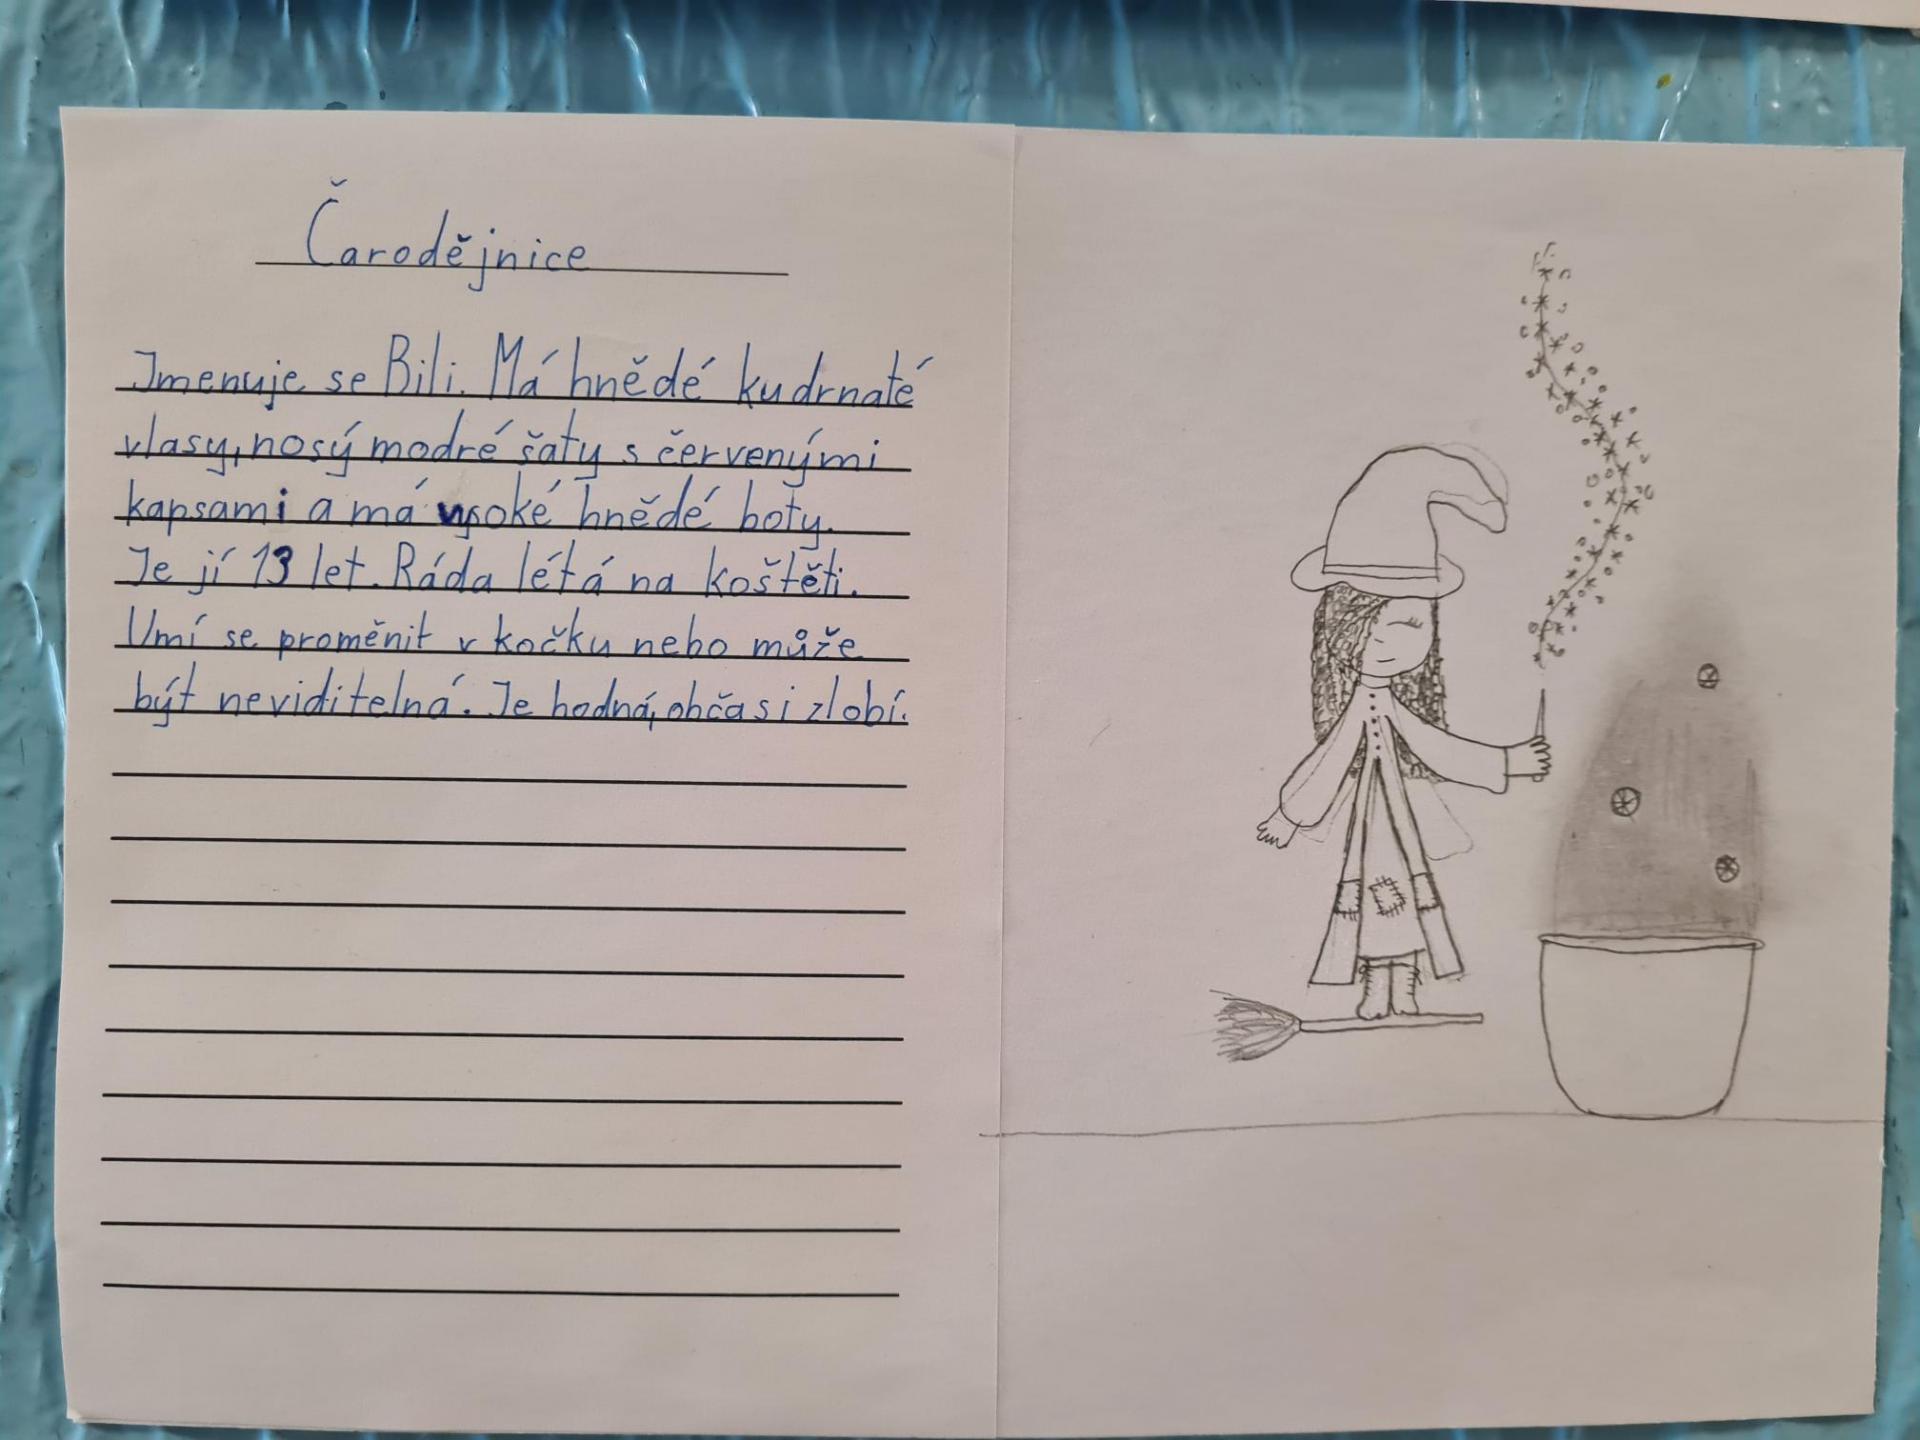 Čarodějnice
Jmenuje se Bili. Má hnědé kudrnaté
vlasy, nosý modré šaty s červenými
kapsami a má vysoké hnědé boty.
Je jí 13 let. Ráda létá na koštěti.
Umí se proměnit v kočku nebo může
být neviditelná. Je hodná, občas i zlobí.